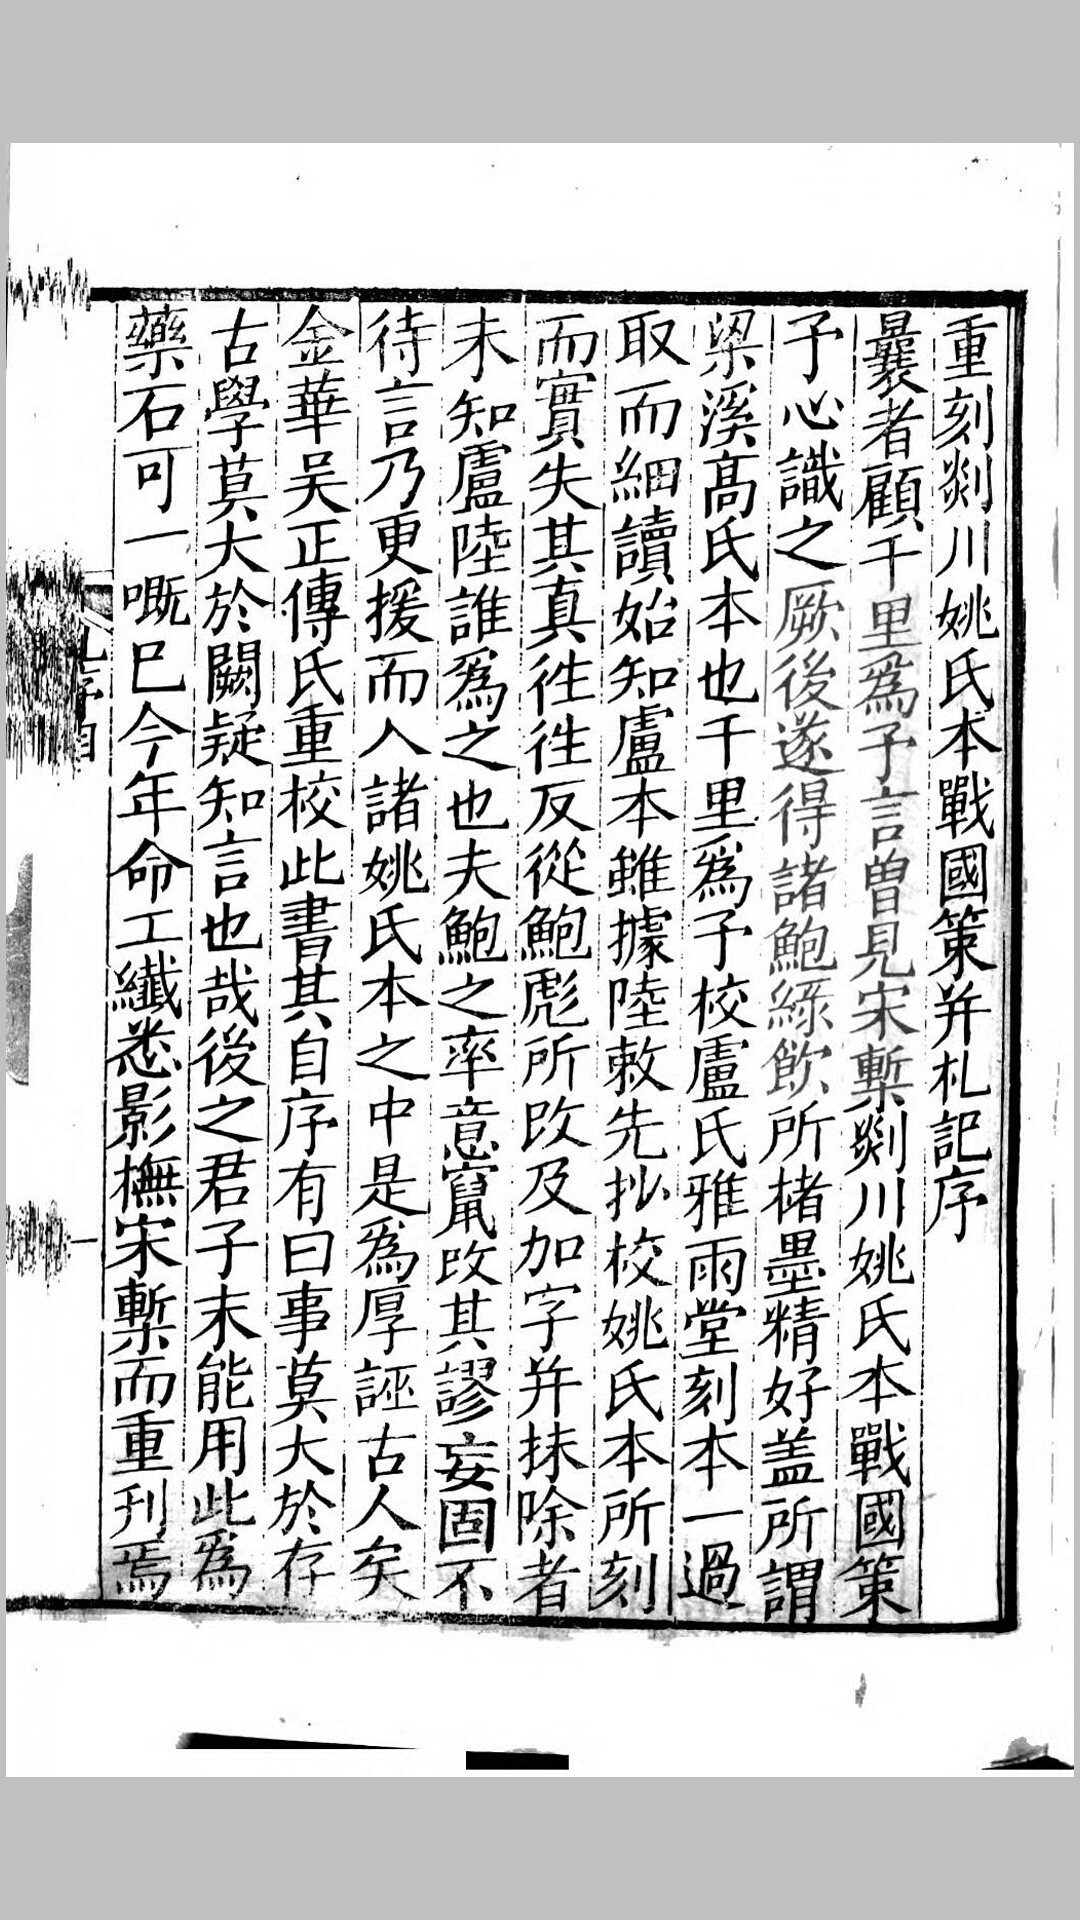 重刻剡川姚氏本戰國策并札記序
曩者顧千里爲予言曾見宋槧剡川姚氏本戰國策
予心識之厥後遂得諸鮑綠飲所楮墨精好盖所謂
梁溪高氏本也千里爲予校盧氏雅雨堂刻本一過
取而細讀始知盧本雖據陸敕先抄校姚氏本所刻
而實失其真往往反從鮑彪所改及加字并抹除者
未知盧陸誰爲之也夫鮑之率意竄改其謬妄固不
待言乃更援而入諸姚氏本之中是爲厚誣古人矣
金華吴正傳氏重校此書其自序有曰事莫大於存
古學莫大於闕疑知言也哉後之君子未能用此爲
藥石可一嘅已今年命工纖悉影橅宋槧而重刊焉